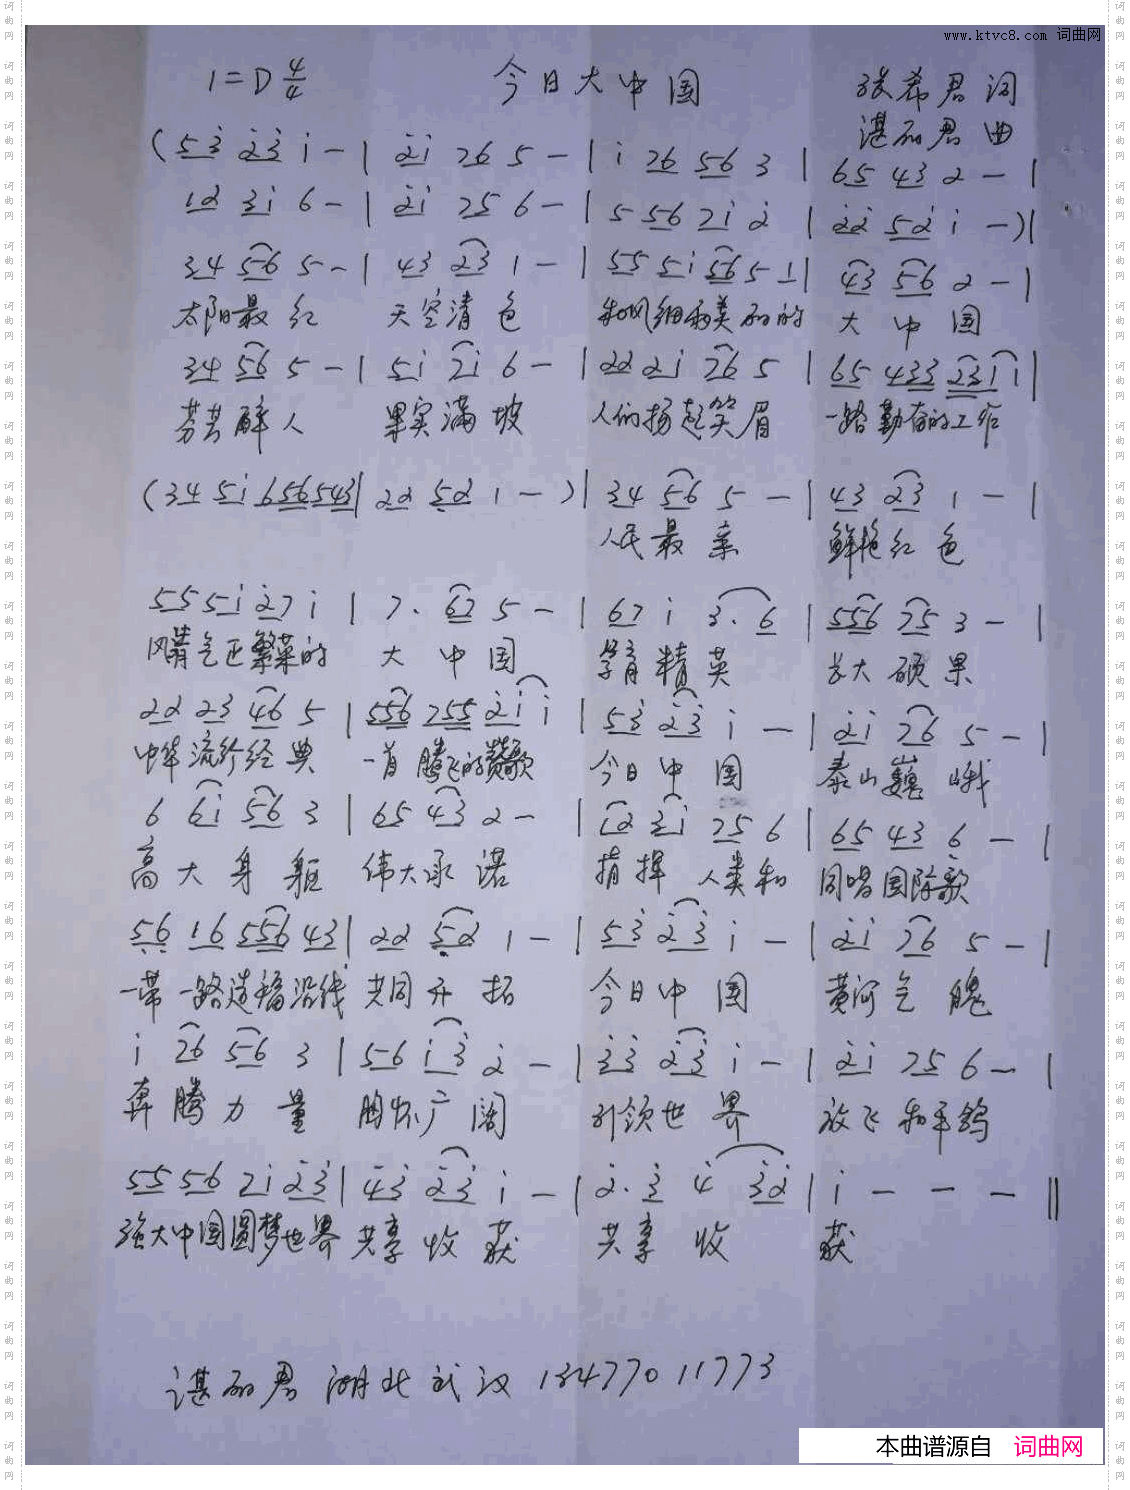 www.ktvc8.com 词曲网
1=D 4/4 今日大中国 张希君 词
湛丽君 曲
(5 3 2 3 1 - | 2 1 7 6 5 - | 1 7 6 5 6 3 | 6 5 4 3 2 - |
1 2 3 1 6 - | 2 1 7 5 6 - | 5 5 6 7 1 2 | 2 2 5 2 1 -) |
3 4 5 6 5 - | 4 3 2 3 1 - | 5 5 5 1 5 6 5 1 | 4 3 5 6 2 - |
太阳最红 天空清色 和风细雨美丽的 大中国
3 4 5 6 5 - | 5 1 2 1 6 - | 2 2 2 1 7 6 5 | 6 5 4 3 3 2 3 1 1 |
芬芳醉人 果实满坡 人们扬起笑眉 一路勤奋的工作
(3 4 5 1 6 5 6 5 4 3 | 2 2 5 2 1 -) | 3 4 5 6 5 - | 4 3 2 3 1 - |
人民最亲 鲜艳红色
5 5 5 1 2 7 1 | 7. 6 7 5 - | 6 7 1 3. 6 | 5 5 6 7 5 3 - |
风清气正繁荣的 大中国 学育精英 长大硕果
2 2 2 3 4 6 5 | 5 5 6 7 5 5 2 1 1 | 5 3 2 3 1 - | 2 1 7 6 5 - |
中华流行经典 一首腾飞的赞歌 今日中国 泰山巍峨
6 6 1 5 6 3 | 6 5 4 3 2 - | 1 2 3 1 7 5 6 | 6 5 4 3 6 - |
高大身躯 伟大承诺 指挥人类和 同唱国际歌
5 6 1 6 5 5 6 4 3 | 2 2 5 2 1 - | 5 3 2 3 1 - | 2 1 7 6 5 - |
一带一路造福沿线 共同开拓 今日中国 黄河气魄
1 7 6 5 6 3 | 5 6 1 3 2 - | 3 3 2 3 1 - | 2 1 7 5 6 - |
奔腾力量 胸怀广阔 引领世界 放飞和平鸽
5 5 5 6 7 1 2 3 | 4 3 2 3 1 - | 2. 3 4 3 2 | 1 - - - ‖
强大中国圆梦世界 共享收获 共享收 获
湛丽君 湖北武汉 13477011773
本曲谱源自 词曲网